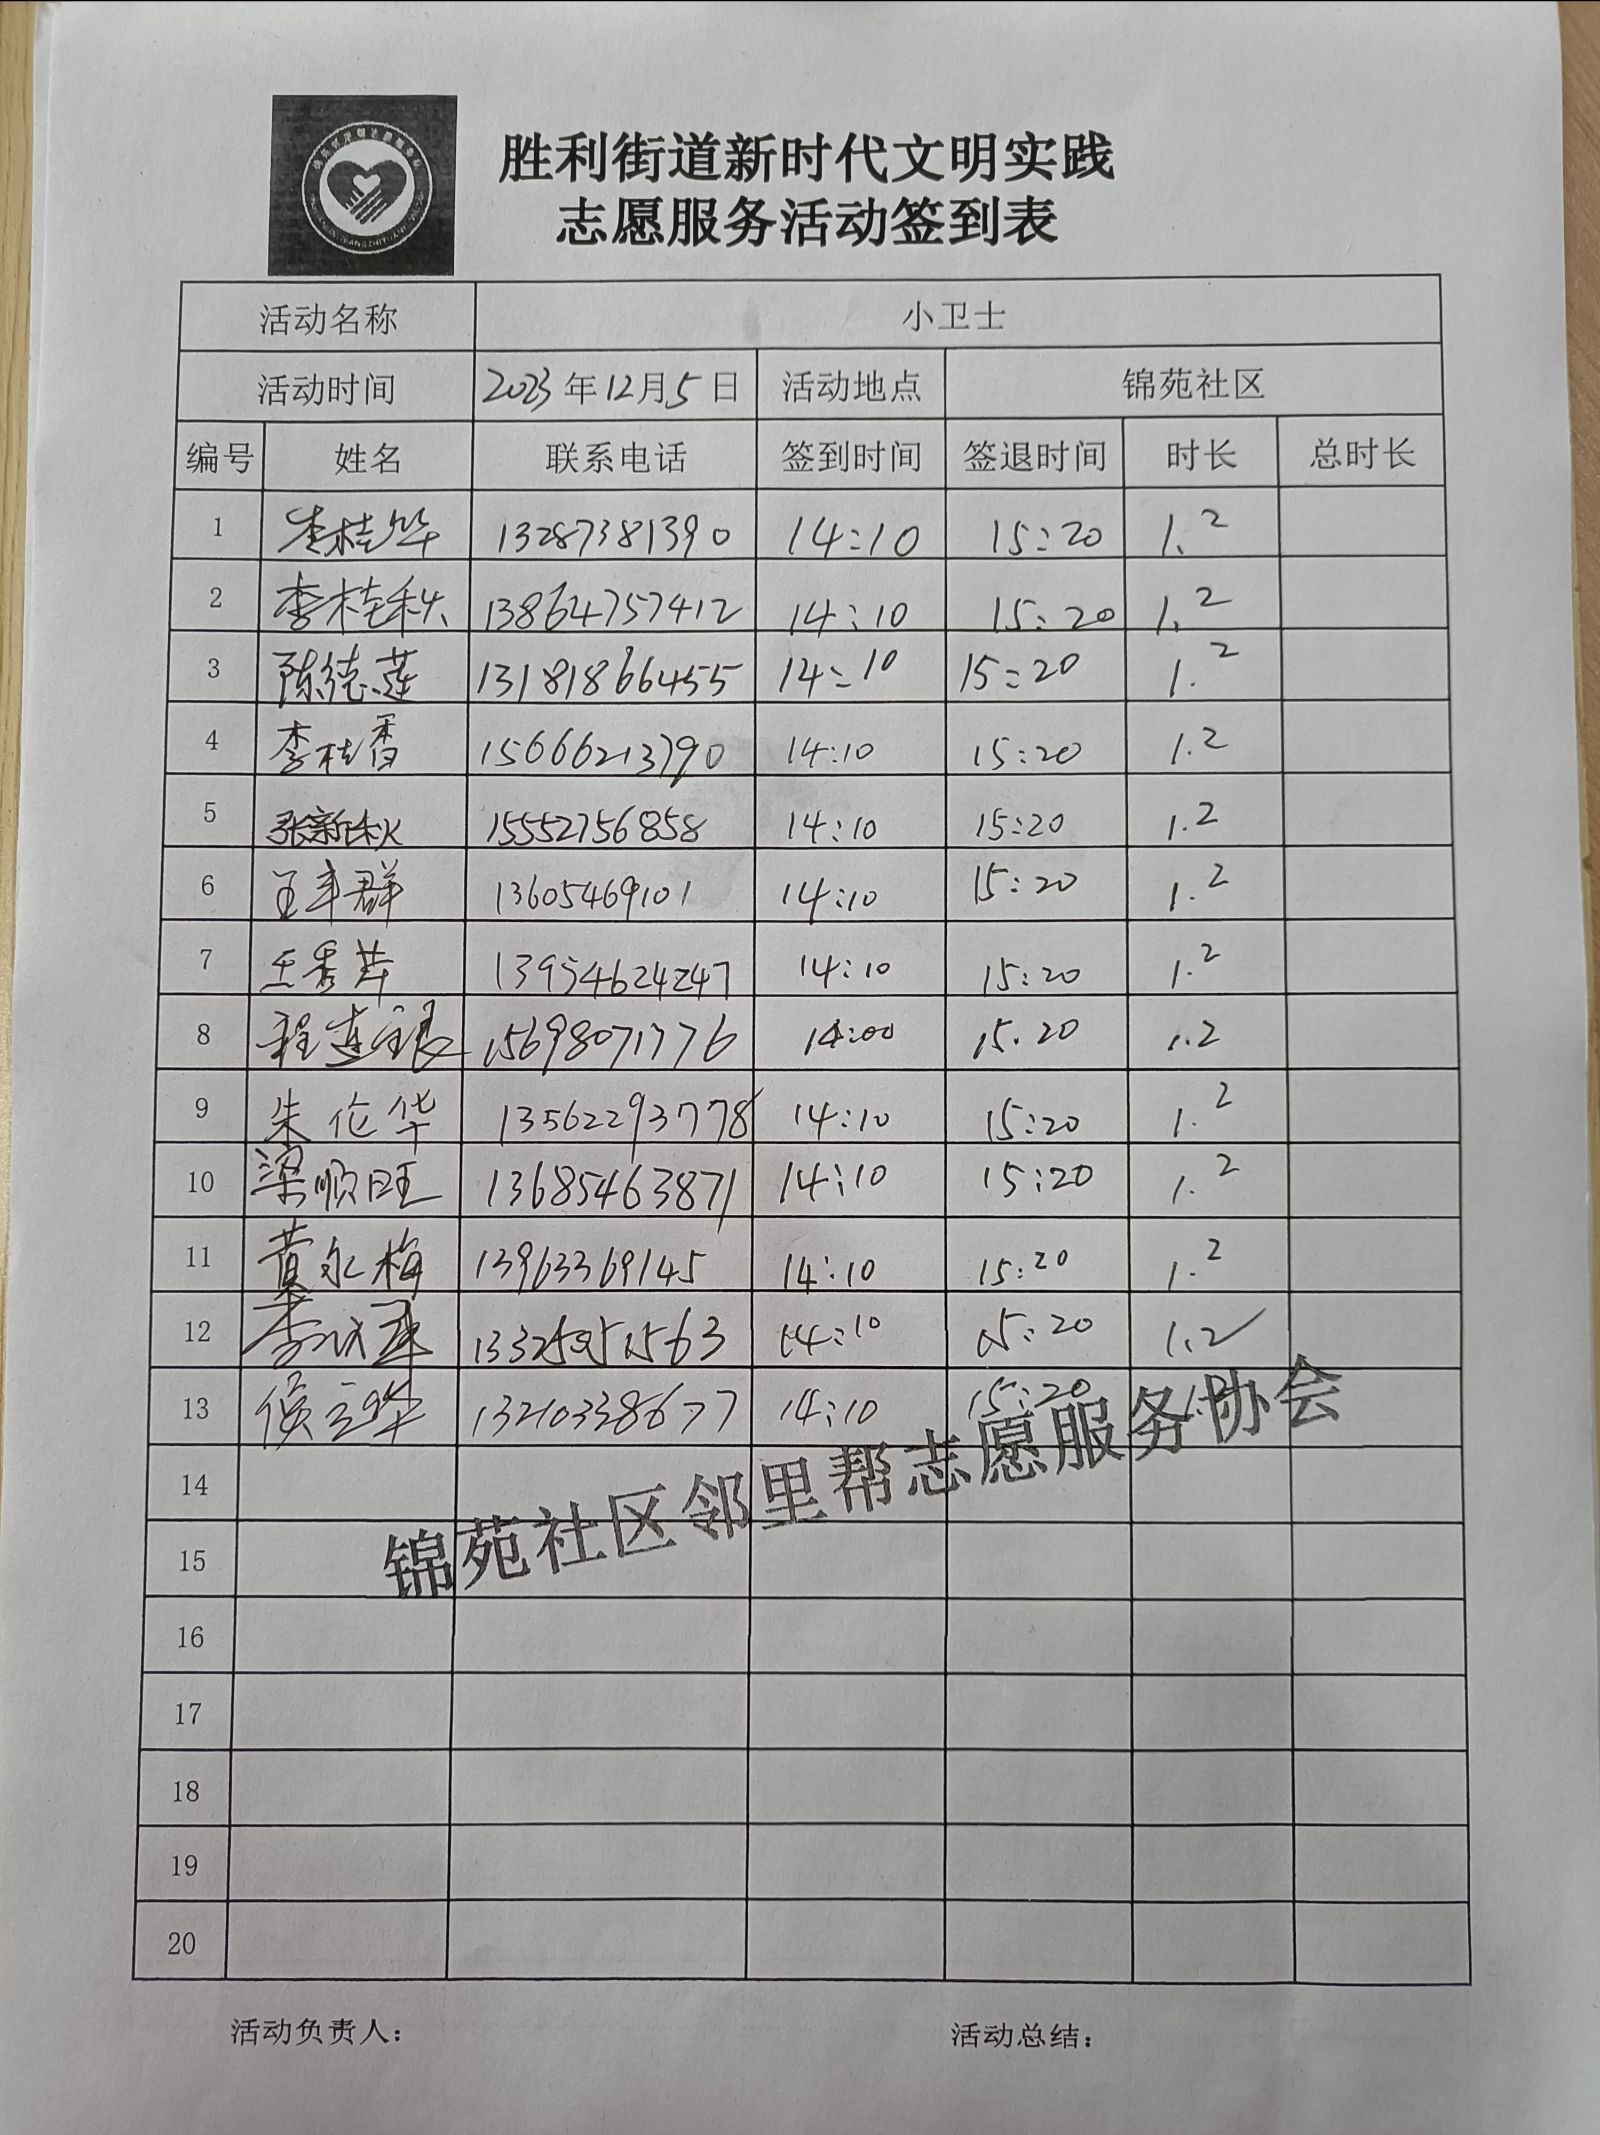 胜利街道新时代文明实践
志愿服务活动签到表
活动名称 小卫士
活动时间 2023年12月5日 活动地点 锦苑社区
编号 姓名 联系电话 签到时间 签退时间 时长 总时长
1 李桂华 13287381390 14:10 15:20 1.2
2 李桂秋 13864757412 14:10 15:20 1.2
3 陈德莲 13181866455 14:10 15:20 1.2
4 李桂香 15666213790 14:10 15:20 1.2
5 张新秋 15552756858 14:10 15:20 1.2
6 王丰群 13605469101 14:10 15:20 1.2
7 王秀萍 13954624247 14:10 15:20 1.2
8 15698071776 14:00 15.20 1.2
9 朱伦华 13562293778 14:10 15:20 1.2
10 梁顺旺 13685463871 14:10 15:20 1.2
11 黄永梅 13963369145 14:10 15:20 1.2
12 14:10 15:20 1.2
13 13210338677 14:10 15:20
锦苑社区邻里帮志愿服务协会
14
15
16
17
18
19
20
活动负责人: 活动总结: